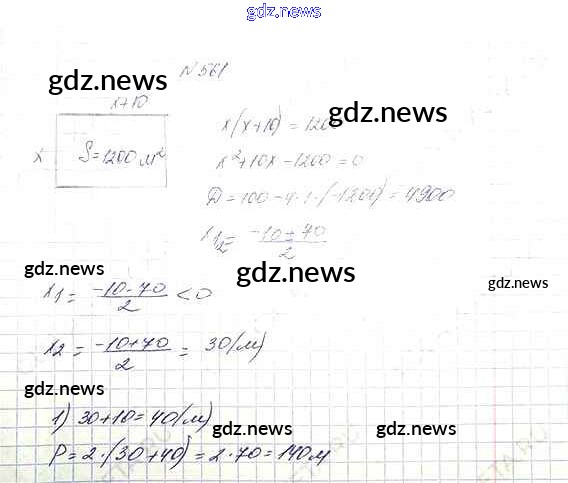 gdz.news
N 561
gdz.news
x+10
gdz.news
x(x+10) = 1200
x S=1200 м²
x²+10x-1200=0
D=100-4·1·(-1200)=4900
x1,2= -10±70 / 2
gdz.news
gdz.news
gdz.news
x1 = -10-70 / 2 <0
x2 = -10+70 / 2 = 30(м)
gdz.news
1) 30+10=40(м)
gdz.news gdz.news
P=2·(30+40)=2·70=140м